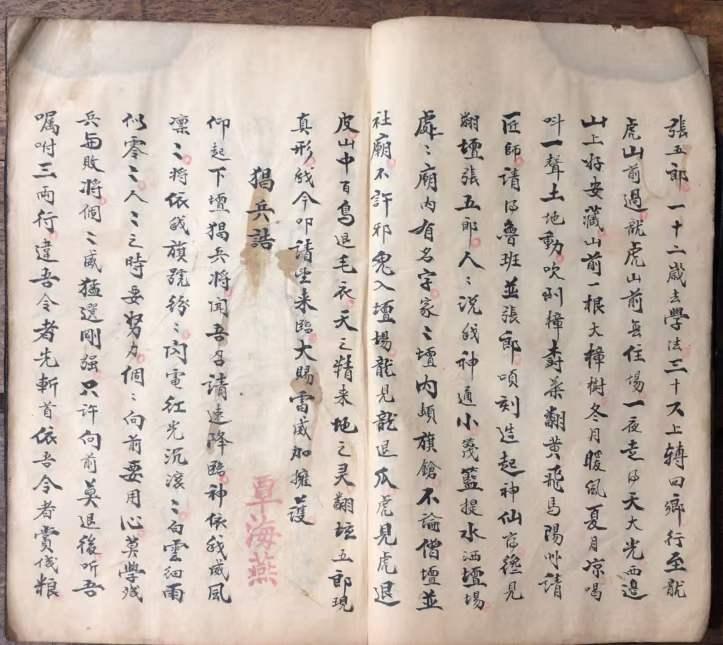 張五郎一十二歲去學法三十六上轉回鄉行至龍
虎山前過龍虎山前無住場一夜走得天大光西邊
山上好安藏山前一根大樟樹冬月暖風夏月凉喝
叫一聲土地動吹倒樟樹葉翻黃飛馬陽州請
匠師請得魯班並張郎頃刻造起神仙
翻壇張五郎人〻說我神通小篾籃提水洒壇場
處〻廟內有名字家〻壇內顛旗鎗不論僧壇並
社廟不許邪鬼入壇場龍見龍退爪虎見虎退
皮山中百鳥退毛衣天之精来地之灵翻坛五郎現
真形我今叩請望来臨大賜雷威加擁護
猖兵誥
仰起下壇猖兵將聞吾召請速降臨神依我威風
凜〻將依我旗號紛〻闪電红光沉滚〻白雲細雨
似零〻人〻之時要努力個〻向前要用心莫學残
兵与敗將個〻威猛選剛强只許向前莫退後听吾
嘱咐三両行違吾令者先斬首依吾令者賞伐粮
覃海燕